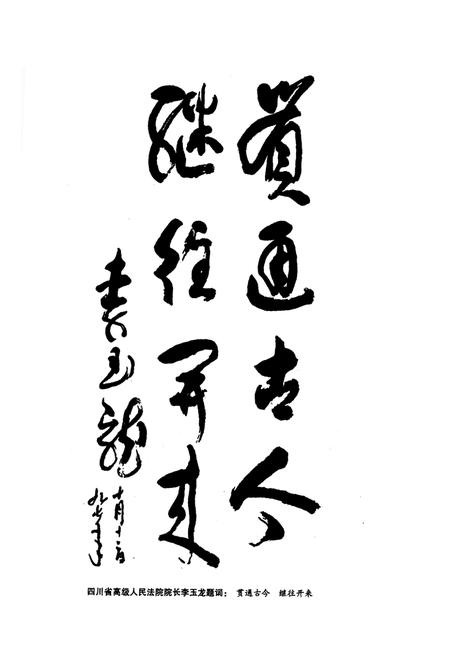 貫通古今
继往開来
李玉龍
四川省高级人民法院院长李玉龙题词： 贯通古今 继往开来